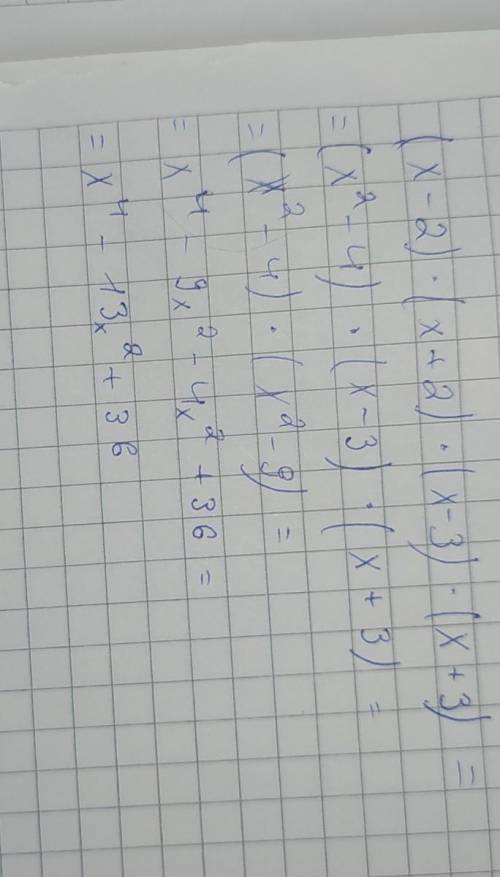 (x-2)·(x+2)·(x-3)·(x+3) =
= (x²-4)·(x-3)·(x+3) =
= (x²-4)·(x²-9) =
= x⁴ - 9x² - 4x² + 36 =
= x⁴ - 13x² + 36